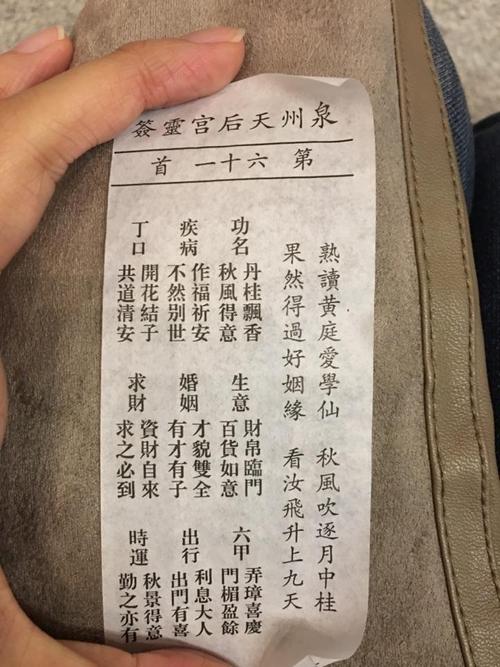 泉州天后宫靈簽
第 六十一 首
熟讀黄庭愛學仙 秋風吹逐月中桂
果然得過好姻緣 看汝飛升上九天
功名
丹桂飄香
秋風得意
疾病
作福祈安
不然别世
丁口
開花結子
共道清安
生意
財帛臨門
百貨如意
婚姻
才貌雙全
有才有子
求財
資財自來
求之必到
六甲
弄璋喜慶
門楣盈餘
出行
利息大人
出門有喜
時運
秋景得意
勤之亦有